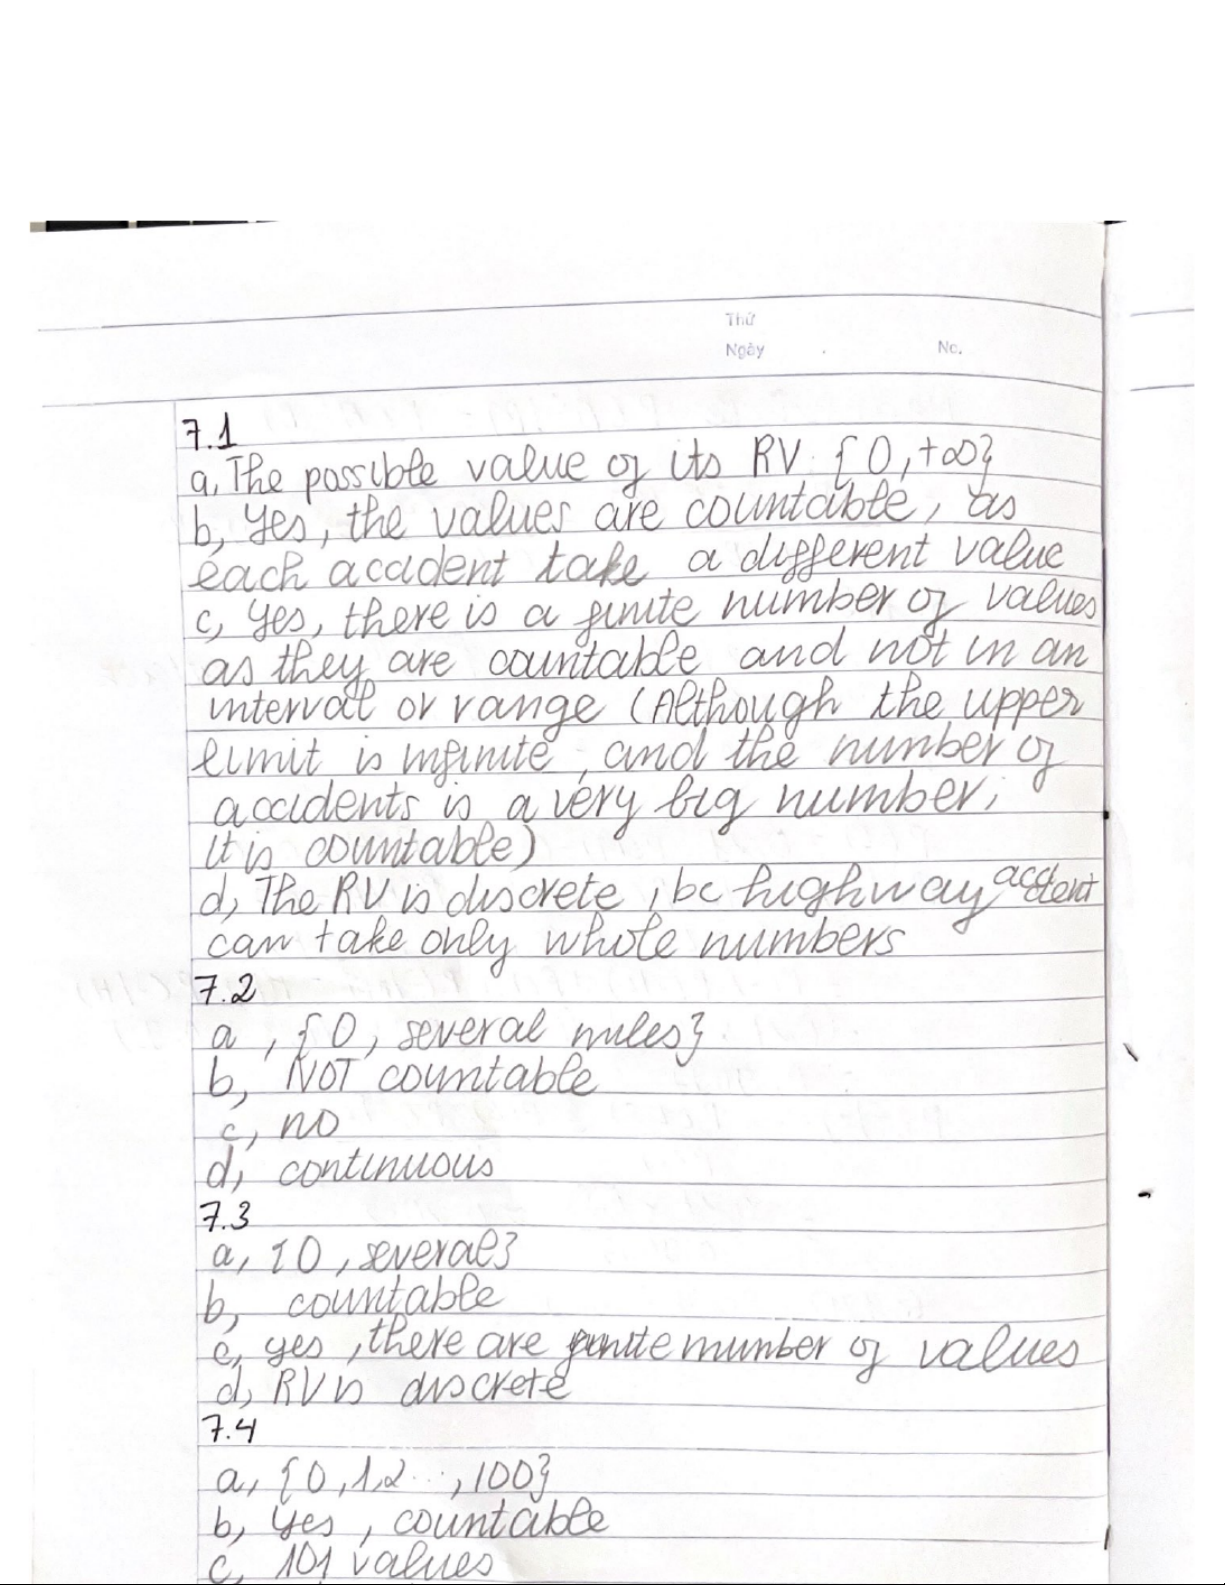 Thứ
Ngày No.
7.1
a, The possible value of its RV {0, +∞}
b, Yes, the values are countable, as
each accident take a different value
c, Yes, there is a finite number of values
as they are countable and not in an
interval or range (Although the upper
limit is infinite, and the number of
accidents is a very big number,
it is countable)
d, The RV is discrete, bc highway accident
can take only whole numbers
7.2
a, {0, several miles}
b, NOT countable
c, no
d, continuous
7.3
a, {0, several}
b, countable
c, yes, there are finite number of values
d, RV is discrete
7.4
a, {0,1,2...,100}
b, Yes, countable
c, 101 values